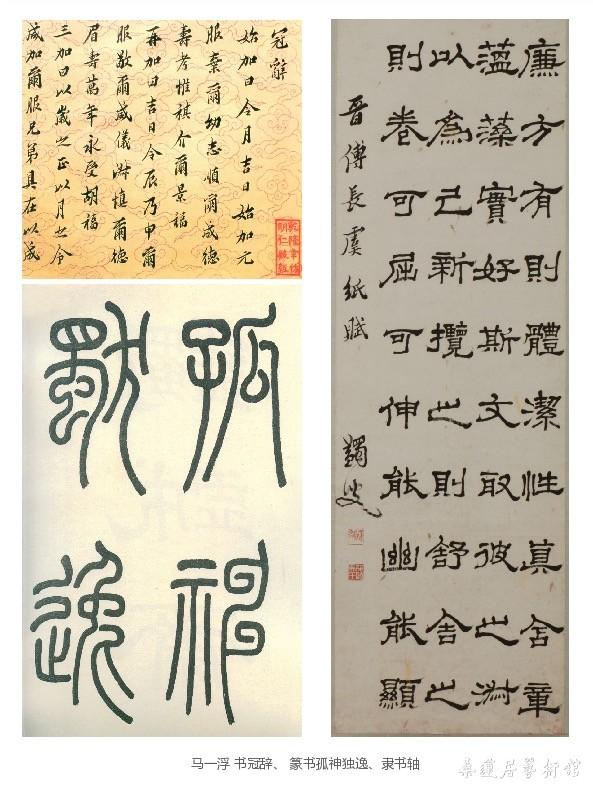 冠辭
始加曰令月吉日始加元
服棄爾幼志順爾成德
壽考惟祺介爾景福
再加曰吉月令辰乃申爾
服敬爾威儀淑慎爾德
眉壽萬年永受胡福
三加曰以歲之正以月之令
咸加爾服兄弟具在以成
乾隆年仿
明仁殿紙
孤神
獨逸
廉方有則體潔性真含章
蘊藻實好斯文取彼之淑
以為己新攬之則舒舍之
則卷可屈可伸能幽能顯
晉傅長虞紙賦 蠲叟
马一浮 书冠辞、篆书孤神独逸、隶书轴
桑蓮居藝術館